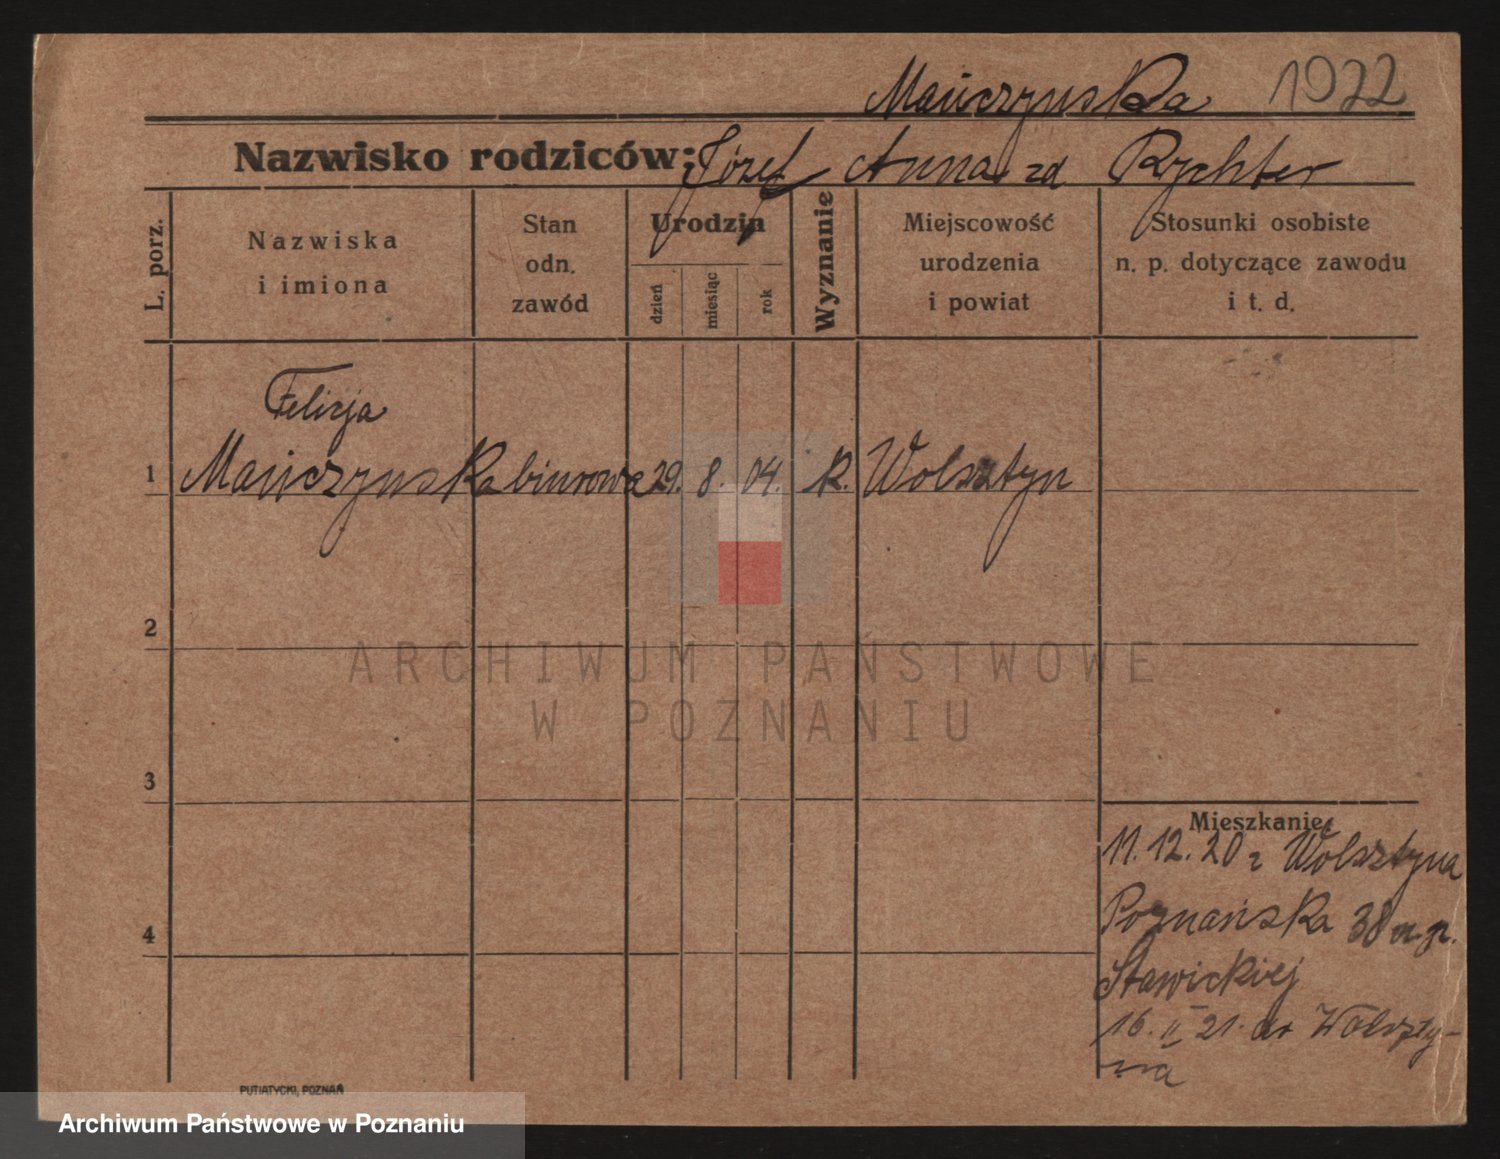 Mańczynska 1922
Nazwisko rodziców: Józef Anna zd Rychter
L. porz.
Nazwiska
i imiona
Stan
odn.
zawód
Urodzin
dzień
miesiąc
rok
Wyznanie
Miejscowość
urodzenia
i powiat
Stosunki osobiste
n. p. dotyczące zawodu
i t. d.
Felicja
1 Mańczynska biurowa 29. 8. 04. k. Wolsztyn
2
3
4
Mieszkanie:
11.12.20 z Wolsztyna
Poznańska 38 m p.
Stawickiej
16. II 21. do Wolszty-
na
PUTIATYCKI, POZNAŃ
ARCHIWUM PAŃSTWOWE
W POZNANIU
Archiwum Państwowe w Poznaniu